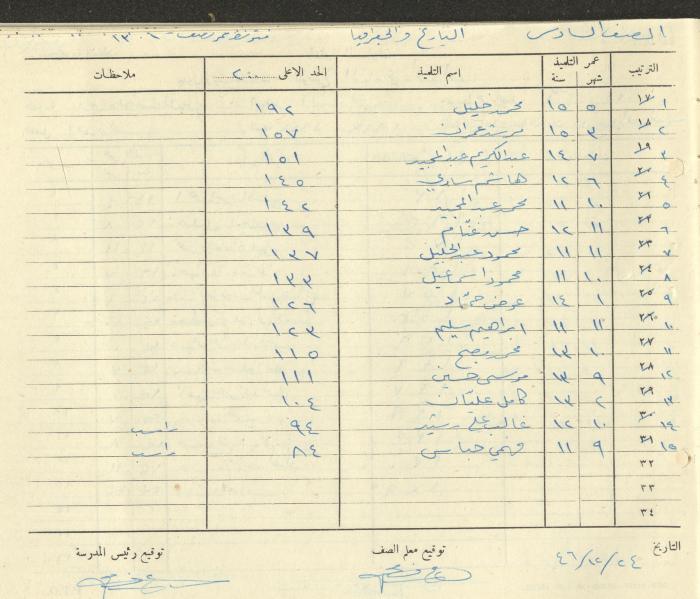 الصف السادس التاريخ والجغرافيا متوسط عمر نصف - ١٣٠٦
الترتيب عمر التلميذ شهر سنة اسم التلميذ الحد الاعلى ٢٠٠ ملاحظات
١٧ ١ ٥ ١٥ محمد خليل ١٩٢
١٨ ٢ ٣ ١٥ مرشد عمران ١٥٧
١٩ ٣ ٧ ١٤ عبد الكريم عبد المجيد ١٥١
٢٠ ٤ ٦ ١٢ هاشم ساري ١٤٥
٢١ ٥ ١٠ ١١ محمد عبد المجيد ١٤٢
٢٢ ٦ ١١ ١٢ حسن غنام ١٣٩
٢٣ ٧ ١١ ١١ محمود عبد الجليل ١٣٧
٢٤ ٨ ١٠ ١١ محمود اسماعيل ١٣٣
٢٥ ٩ ١ ١٤ عوض حماد ١٢٦
٢٦ ١٠ ١١ ١١ ابراهيم سليم ١٢٣
٢٧ ١١ ١٠ ١٣ محمد ١١٥
٢٨ ١٢ ٩ ١٣ موسى حسين ١١١
٢٩ ١٣ ٢ ١٣ كامل عليّان ١٠٤
٣٠ ١٤ ١٠ ١٢ غالب علي رشيد ٩٤ راسب
٣١ ١٥ ٩ ١١ فهمي حباس ٨٤ راسب
٣٢
٣٣
٣٤
التاريخ ٤٦/١٢/٢٤ توقيع معلم الصف توقيع رئيس المدرسة